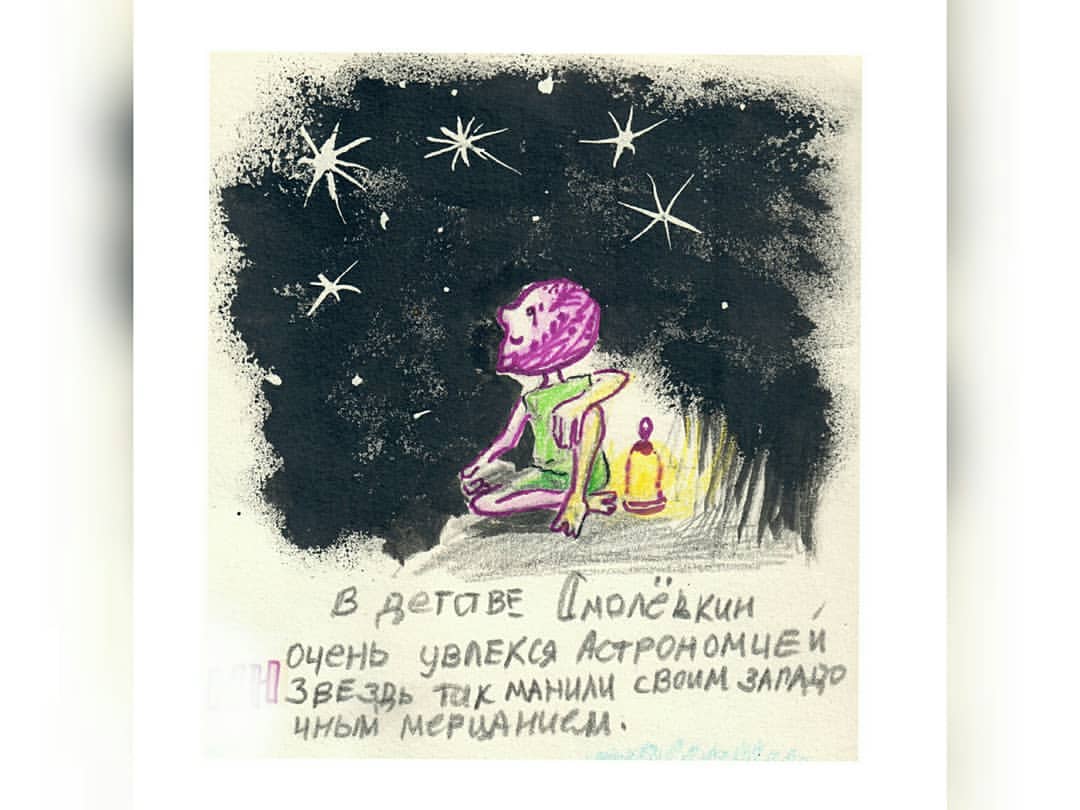 В детстве Смолёвкин
очень увлекся Астрономией
Звездь так манили своим западо
чным мерцанием.